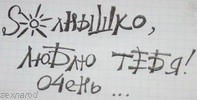 Солнышко,
люблю тебя!
очень ...
sexnarod